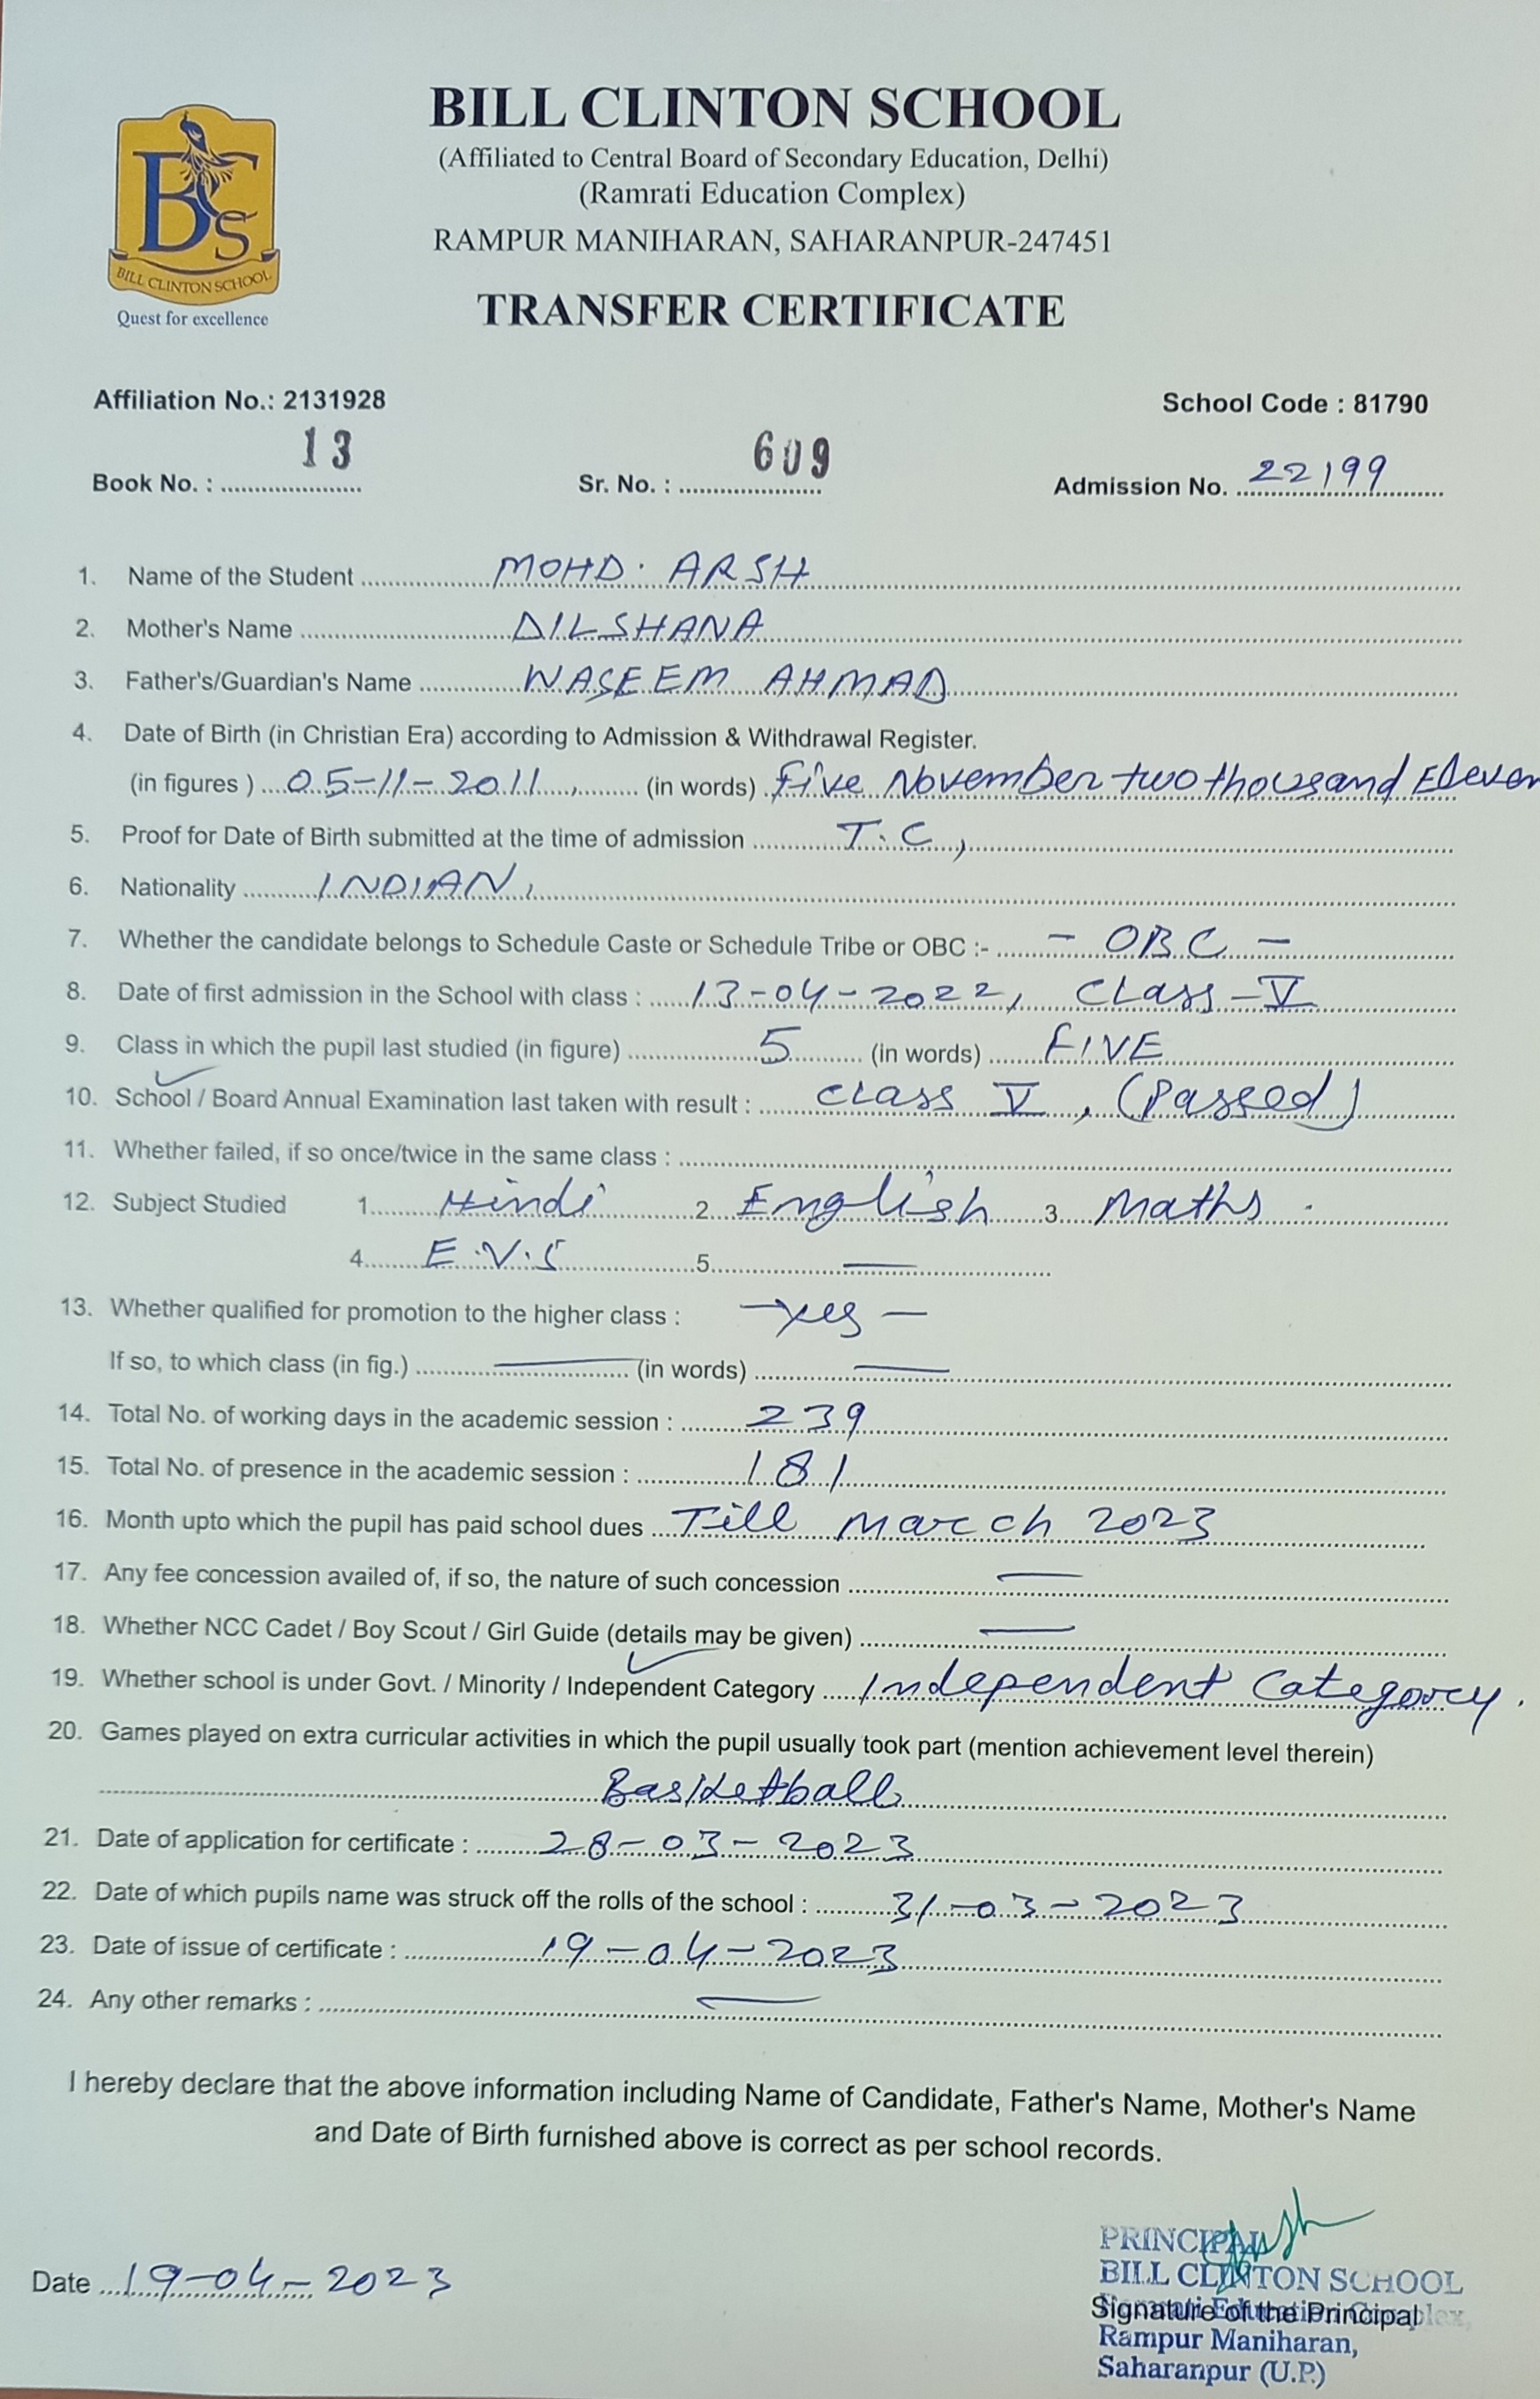 BILL CLINTON SCHOOL
(Affiliated to Central Board of Secondary Education, Delhi)
(Ramrati Education Complex)
RAMPUR MANIHARAN, SAHARANPUR-247451
TRANSFER CERTIFICATE
BCS
BILL CLINTON SCHOOL
Quest for excellence
Affiliation No.: 2131928 School Code : 81790
Book No. : 13 Sr. No. : 609 Admission No. 22199
1. Name of the Student MOHD. ARSH
2. Mother's Name DILSHANA
3. Father's/Guardian's Name WASEEM AHMAD
4. Date of Birth (in Christian Era) according to Admission & Withdrawal Register.
(in figures ) 05-11-2011, (in words) Five November two thousand Eleven
5. Proof for Date of Birth submitted at the time of admission T.C,
6. Nationality INDIAN,
7. Whether the candidate belongs to Schedule Caste or Schedule Tribe or OBC :- - OBC -
8. Date of first admission in the School with class : 13-04-2022, Class-V
9. Class in which the pupil last studied (in figure) 5 (in words) FIVE
10. School / Board Annual Examination last taken with result : class V, (Passed)
11. Whether failed, if so once/twice in the same class :
12. Subject Studied 1. Hindi 2. English 3. Maths.
4. E.V.S 5. —
13. Whether qualified for promotion to the higher class : - yes -
If so, to which class (in fig.) — (in words) —
14. Total No. of working days in the academic session : 239
15. Total No. of presence in the academic session : 181
16. Month upto which the pupil has paid school dues Till March 2023
17. Any fee concession availed of, if so, the nature of such concession —
18. Whether NCC Cadet / Boy Scout / Girl Guide (details may be given) —
19. Whether school is under Govt. / Minority / Independent Category Independent Category.
20. Games played on extra curricular activities in which the pupil usually took part (mention achievement level therein)
Basketball
21. Date of application for certificate : 28-03-2023
22. Date of which pupils name was struck off the rolls of the school : 31-03-2023
23. Date of issue of certificate : 19-04-2023
24. Any other remarks : —
I hereby declare that the above information including Name of Candidate, Father's Name, Mother's Name
and Date of Birth furnished above is correct as per school records.
PRINCIPAL
Date 19-04-2023 BILL CLINTON SCHOOL
Signature of the Principal
Rampur Maniharan,
Saharanpur (U.P.)